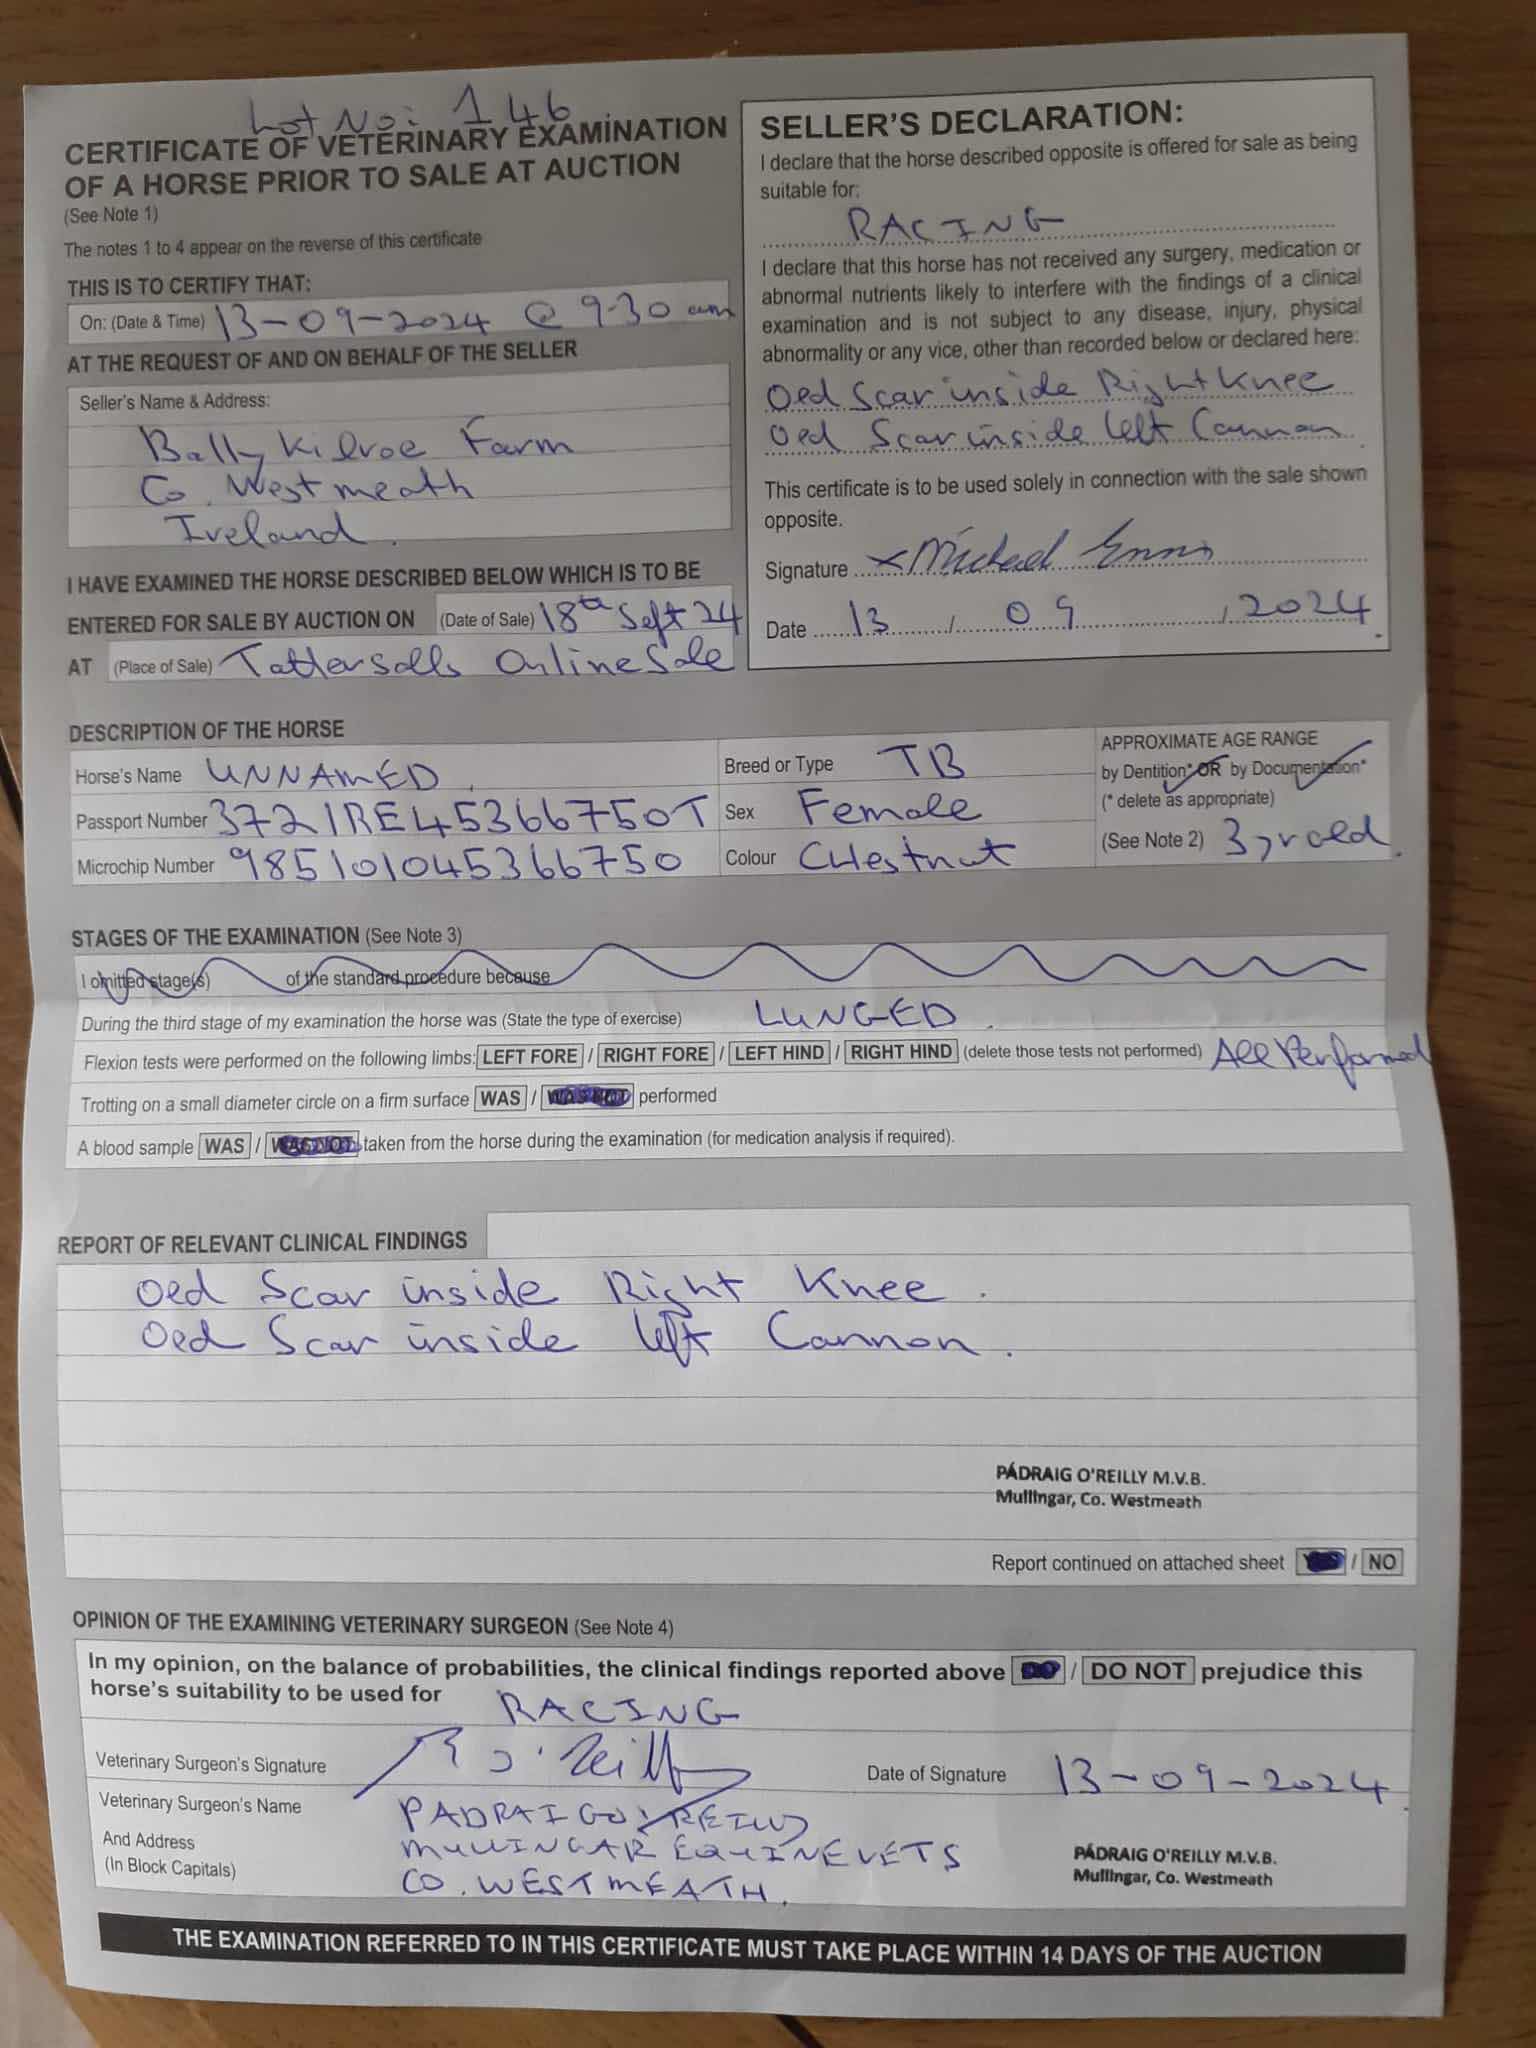 Lot No: 146
CERTIFICATE OF VETERINARY EXAMINATION
OF A HORSE PRIOR TO SALE AT AUCTION
(See Note 1)
The notes 1 to 4 appear on the reverse of this certificate
THIS IS TO CERTIFY THAT:
On: (Date & Time) 13-09-2024 @ 9.30 am
AT THE REQUEST OF AND ON BEHALF OF THE SELLER
Seller's Name & Address:
Bally Kilroe Farm
Co. Westmeath
Ireland.
I HAVE EXAMINED THE HORSE DESCRIBED BELOW WHICH IS TO BE
ENTERED FOR SALE BY AUCTION ON (Date of Sale) 18th Sept 24
AT (Place of Sale) Tattersalls Online Sale
SELLER'S DECLARATION:
I declare that the horse described opposite is offered for sale as being
suitable for:
RACING
I declare that this horse has not received any surgery, medication or
abnormal nutrients likely to interfere with the findings of a clinical
examination and is not subject to any disease, injury, physical
abnormality or any vice, other than recorded below or declared here:
Old Scar inside Right Knee
Old Scar inside left Cannon
This certificate is to be used solely in connection with the sale shown
opposite.
Signature x Michael Ennis
Date 13 / 09 / 2024
DESCRIPTION OF THE HORSE
Horse's Name UNNAMED.
Passport Number 372IRE45366750T
Microchip Number 985101045366750
Breed or Type TB
Sex Female
Colour CHestnut
APPROXIMATE AGE RANGE
by Dentition* OR by Documentation*
(* delete as appropriate)
(See Note 2) 3yr old.
STAGES OF THE EXAMINATION (See Note 3)
I omitted stage(s) of the standard procedure because
During the third stage of my examination the horse was (State the type of exercise) LUNGED.
Flexion tests were performed on the following limbs: LEFT FORE / RIGHT FORE / LEFT HIND / RIGHT HIND (delete those tests not performed) All Performed
Trotting on a small diameter circle on a firm surface WAS / WAS NOT performed
A blood sample WAS / WAS NOT taken from the horse during the examination (for medication analysis if required).
REPORT OF RELEVANT CLINICAL FINDINGS
Old Scar inside Right Knee.
Old Scar inside left Cannon.
PÁDRAIG O'REILLY M.V.B.
Mullingar, Co. Westmeath
Report continued on attached sheet YES / NO
OPINION OF THE EXAMINING VETERINARY SURGEON (See Note 4)
In my opinion, on the balance of probabilities, the clinical findings reported above DO / DO NOT prejudice this
horse's suitability to be used for RACING
Veterinary Surgeon's Signature P O'Reilly
Date of Signature 13-09-2024
Veterinary Surgeon's Name
And Address
(In Block Capitals)
PADRAIG O'REILLY
MULLINGAR EQUINE VETS
CO. WESTMEATH.
PÁDRAIG O'REILLY M.V.B.
Mullingar, Co. Westmeath
THE EXAMINATION REFERRED TO IN THIS CERTIFICATE MUST TAKE PLACE WITHIN 14 DAYS OF THE AUCTION